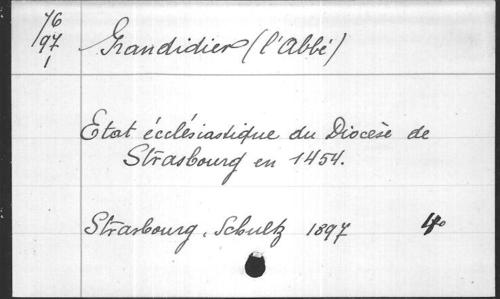 76
/97
1
Grandidier (l'Abbé)
Etat écclésiastique du Diocèse de
Strasbourg en 1454.
Strasbourg, Schultz 1897 4°